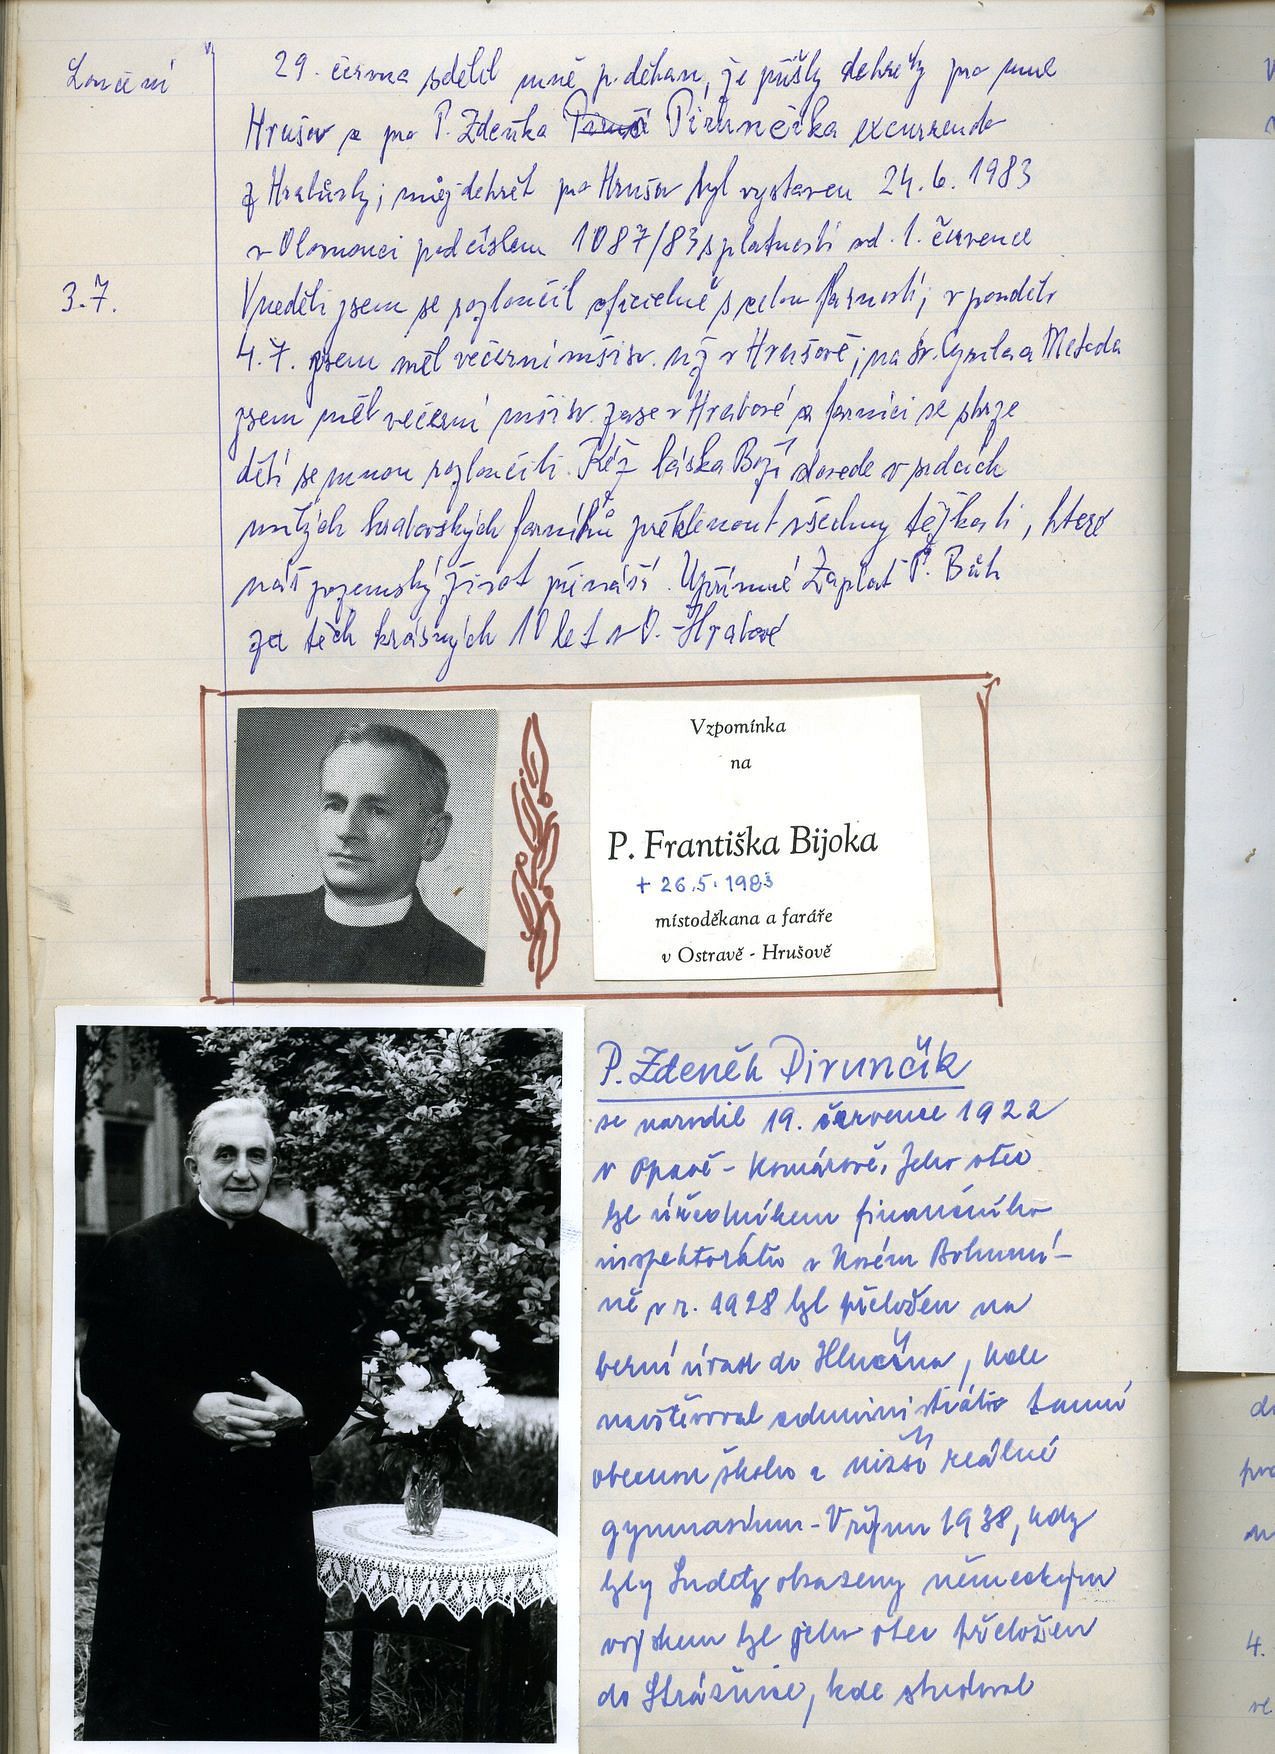 Loučení
29. června sdělil mně p. děkan, že přišly dekrety pro mne
Hrušov a pro P. Zdeňka Pirunčíka excurrendo
z Hrabůvky; můj dekrét pro Hrušov byl vystaven 24. 6. 1983
v Olomouci pod číslem 1087/83 s platností od 1. července
3.7.
V neděli jsem se rozloučil oficielně s celou farností; v pondělí
4.7. jsem měl večerní mši sv. už v Hrušově; na sv. Cyrila a Metoda
jsem měl večerní mši sv. zase v Hrabové a farníci se skrze
děti se mnou rozloučili. Kéž láska Boží dovede v srdcích
milých hrabovských farníků překlenout všechny těžkosti, které
náš pozemský život přináší. Upřímné Zaplať P. Bůh
za těch krásných 10 let v O.-Hrabové
Vzpomínka
na
P. Františka Bijoka
+ 26.5.1983
místoděkana a faráře
v Ostravě - Hrušově
P. Zdeněk Pirunčík
se narodil 19. července 1922
v Opavě - Komárově. Jeho otec
byl úředníkem finančního
inspektorátu v Novém Bohumí-
ně v r. 1928 byl přeložen na
berní úřad do Hlučína, kde
navštěvoval administrátor tamní
obecnou školu a nižší reálné
gymnasium - V říjnu 1938, kdy
byly Sudety obsazeny německým
vojskem byl jeho otec přeložen
do Strážnice, kde studoval
4.